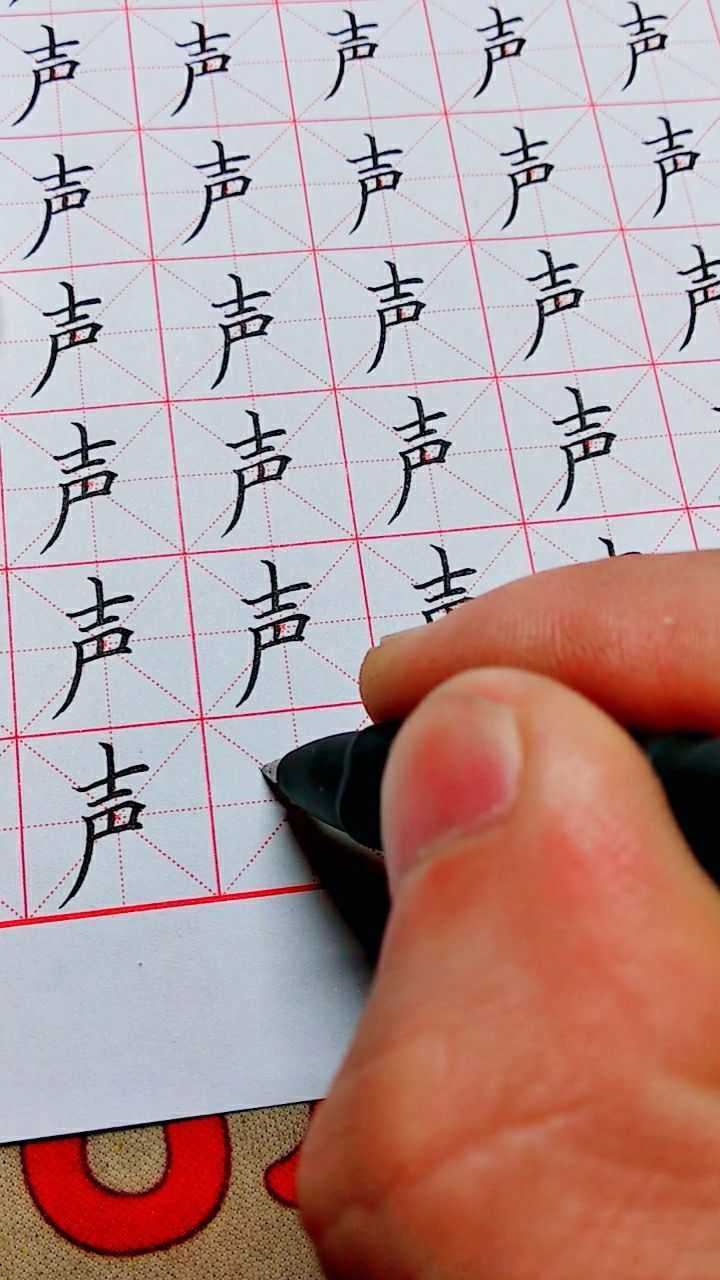 声声声声声
声声声声声
声声声声声
声声声声
声声声
声